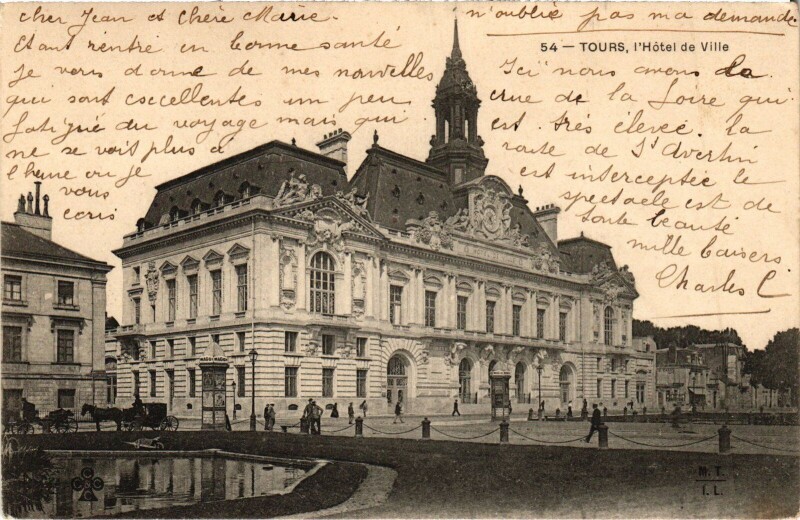 cher Jean et Chère Marie.
Etant rentré en bonne santé
je vous donne de mes nouvelles
qui sont excellentes un peu
fatigué du voyage mais qui
ne se voit plus à
l'heure ou je
vous
écris
n'oublie pas ma demande
54 — TOURS, l'Hôtel de Ville
Ici nous avons de la
crue de la Loire qui
est très élevée. la
route de St Avertin
est interceptée le
spectacle est de
toute beauté
mille baisers
Charles C
M. T.
I. L.